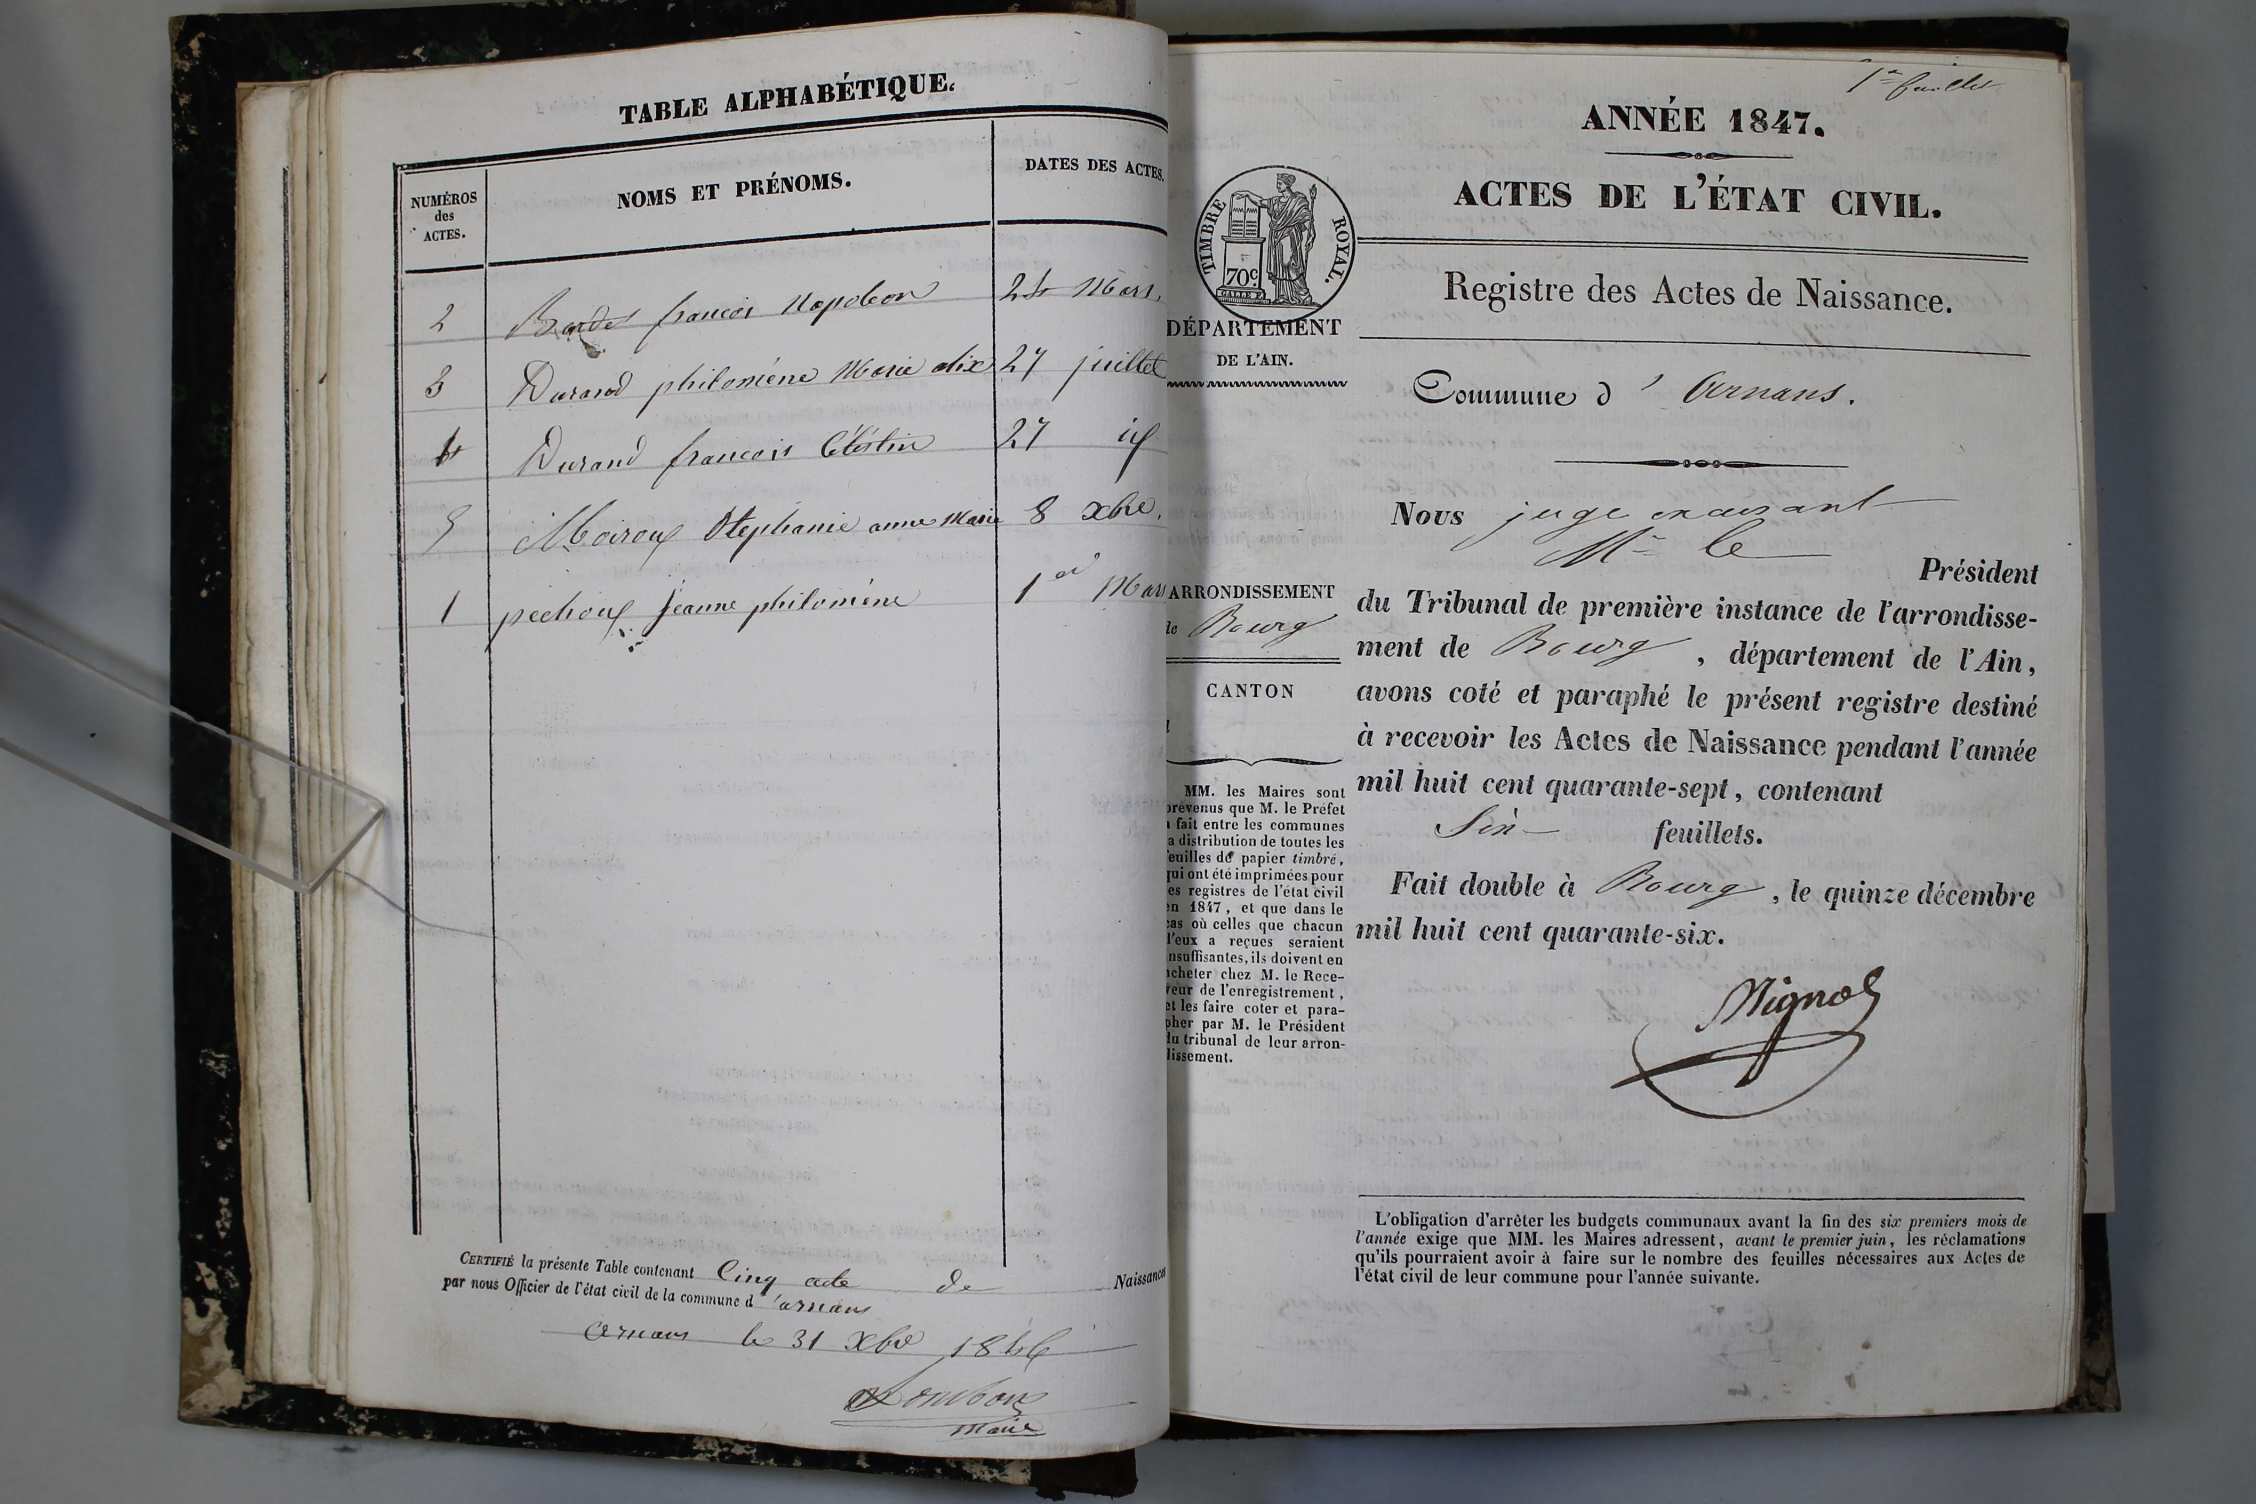 TABLE ALPHABÉTIQUE.
NUMÉROS des ACTES.
NOMS ET PRÉNOMS.
DATES DES ACTES.
2 francois Napoleon 24 Mars.
3 Durand philoméne Marie alix 27 juillet
4 Durand francois Célestin 27
5 Moiroux Stephanie anne Marie 8 xbre.
1 pechoux jeanne philoméne 1er Mars
CERTIFIÉ la présente Table contenant Cinq acte de Naissances
par nous Officier de l'état civil de la commune d'arnans
arnans le 31 Xbre 1846
Maire
1er feuillet
ANNÉE 1847.
ACTES DE L'ÉTAT CIVIL.
TIMBRE ROYAL.
70c
Registre des Actes de Naissance.
DÉPARTEMENT
DE L'AIN.
Commune d'Arnans.
Nous juge
Mr le
Président
du Tribunal de première instance de l'arrondisse-
ment de Bourg, département de l'Ain,
avons coté et paraphé le présent registre destiné
à recevoir les Actes de Naissance pendant l'année
mil huit cent quarante-sept, contenant
Six feuillets.
Fait double à Bourg, le quinze décembre
mil huit cent quarante-six.
ARRONDISSEMENT
de Bourg
CANTON
MM. les Maires sont
prévenus que M. le Préfet
a fait entre les communes
la distribution de toutes les
feuilles de papier timbré,
qui ont été imprimées pour
les registres de l'état civil
en 1847, et que dans le
cas où celles que chacun
d'eux a reçues seraient
insuffisantes, ils doivent en
acheter chez M. le Rece-
veur de l'enregistrement,
et les faire coter et para-
pher par M. le Président
du tribunal de leur arron-
dissement.
L'obligation d'arrêter les budgets communaux avant la fin des six premiers mois de
l'année exige que MM. les Maires adressent, avant le premier juin, les réclamations
qu'ils pourraient avoir à faire sur le nombre des feuilles nécessaires aux Actes de
l'état civil de leur commune pour l'année suivante.